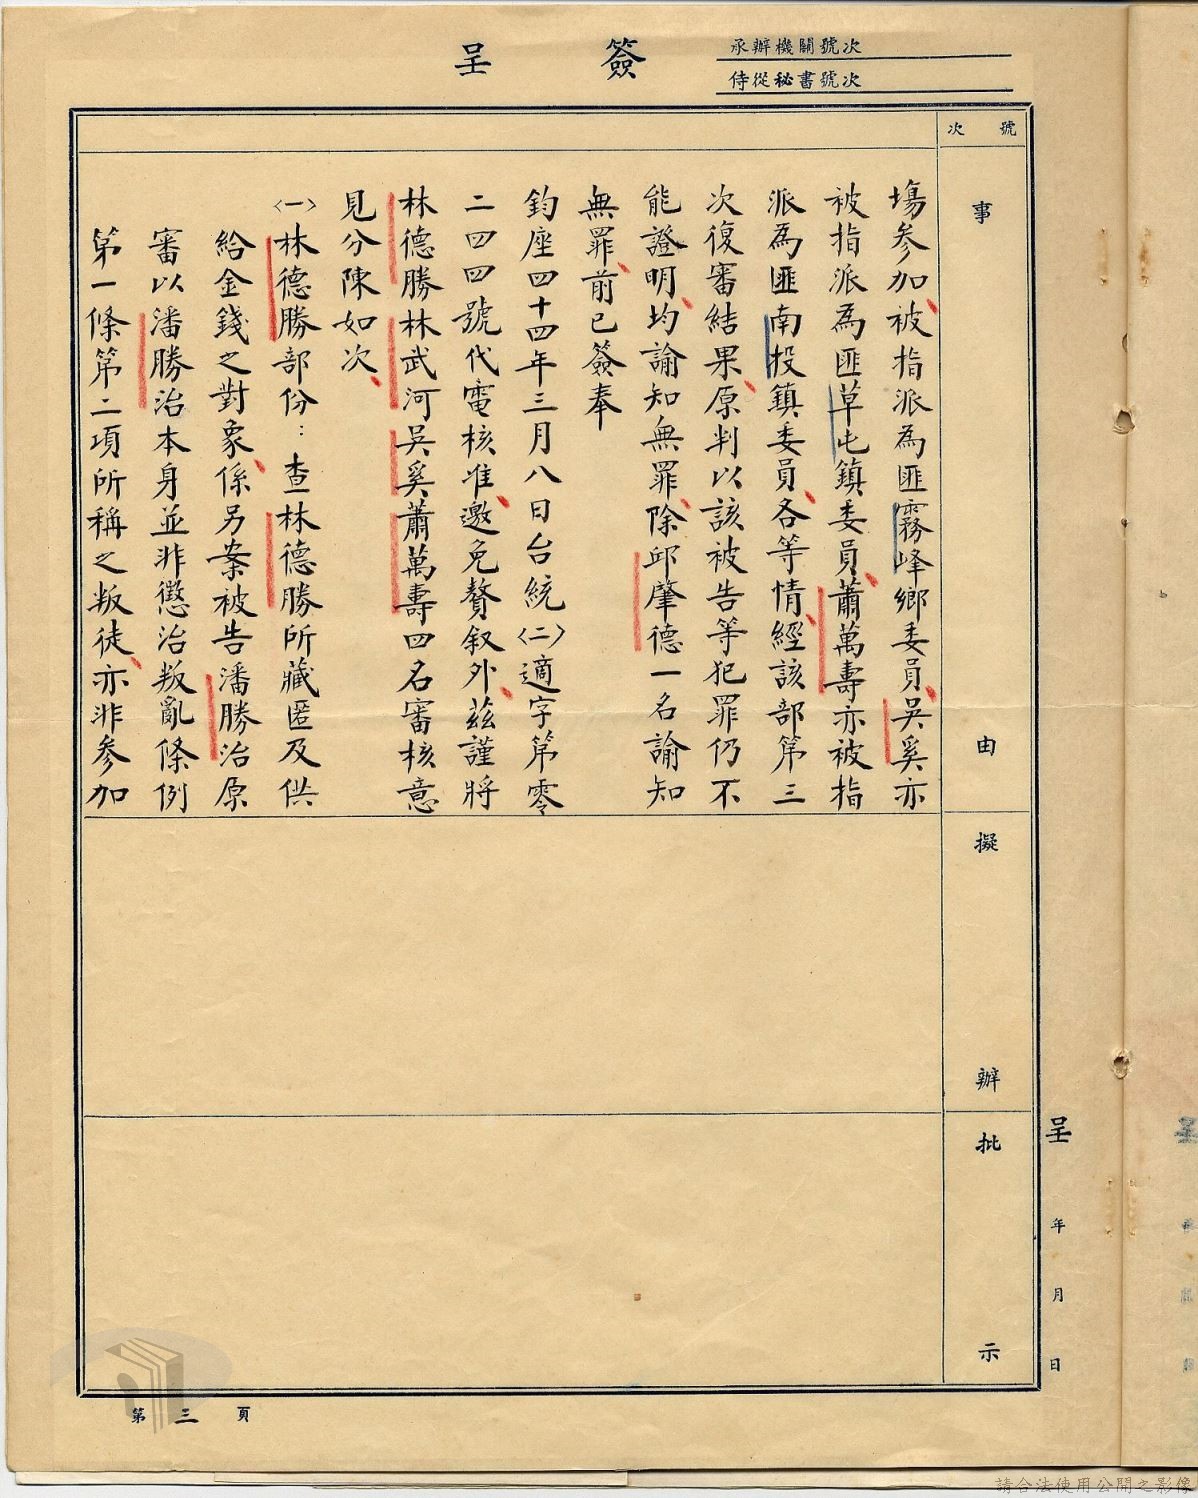 簽呈
承辦機關號次
侍從秘書號次
號次
事由
擬辦
批示
塲參加被指派為匪霧峰鄉委員、吳奚亦
被指派為匪草屯鎮委員、蕭萬壽亦被指
派為匪南投鎮委員、各等情、經該部第三
次復審結果、原判以該被告等犯罪仍不
能證明、均諭知無罪、除邱肇德一名諭知
無罪、前已簽奉
鈞座四十四年三月八日台統〈二〉適字第零
二四四號代電核准、邀免贅叙外、茲謹將
林德勝林武河吳奚蕭萬壽四名審核意
見分陳如次、
〈一〉林德勝部份：查林德勝所藏匿及供
給金錢之對象、係另案被告潘勝治原
審以潘勝治本身並非懲治叛亂條例
第一條第二項所稱之叛徒、亦非參加
呈
年
月
日
第三頁
請合法使用公開之影像